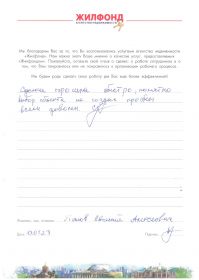 ЖИЛФОНД
Мы благодарим Вас за то, что Вы воспользовались услугами агентства недвижимости
«Жилфонд». Нам важно знать Ваше мнение о качестве услуг, предоставляемых
«Жилфондом». Пожалуйста, оставьте свой отзыв о сделке, о работе сотрудников и о
том, что Вам понравилось или не понравилось в организации рабочего процесса.
Мы будем рады сделать свою работу для Вас еще более эффективной!
Сделка прошла быстро, понятно
выбор объекта не создал проблем
всем довольны
Дата
Подпись